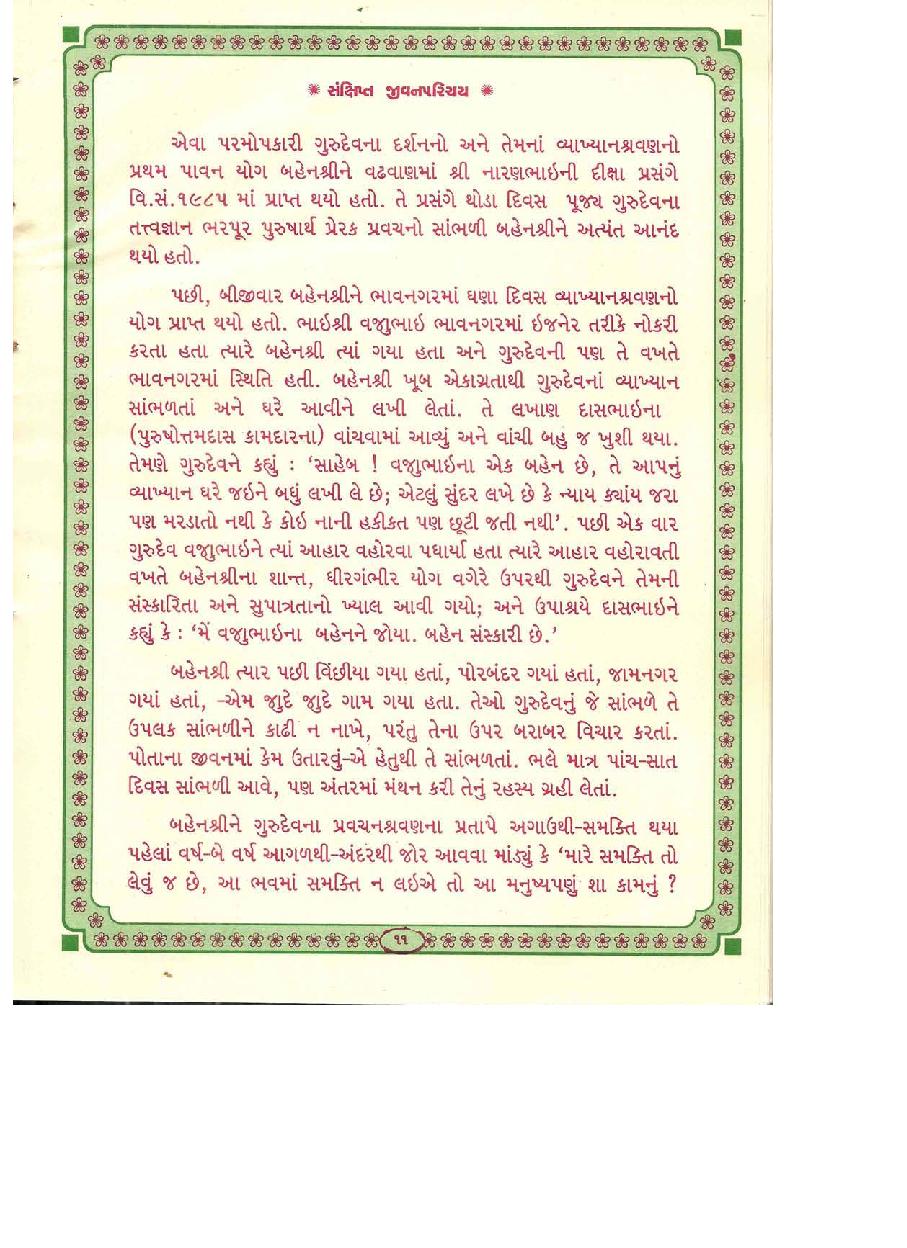 ✺ સંક્ષિપ્ત જીવનપરિચય ✺
એવા પરમોપકારી ગુરુદેવના દર્શનનો અને તેમનાં વ્યાખ્યાનશ્રવણનો
પ્રથમ પાવન યોગ બહેનશ્રીને વઢવાણમાં શ્રી નારણભાઇની દીક્ષા પ્રસંગે
વિ.સં.૧૯૮૫ માં પ્રાપ્ત થયો હતો. તે પ્રસંગે થોડા દિવસ પૂજ્ય ગુરુદેવના
તત્ત્વજ્ઞાન ભરપૂર પુરુષાર્થ પ્રેરક પ્રવચનો સાંભળી બહેનશ્રીને અત્યંત આનંદ
થયો હતો.
પછી, બીજીવાર બહેનશ્રીને ભાવનગરમાં ઘણા દિવસ વ્યાખ્યાનશ્રવણનો
યોગ પ્રાપ્ત થયો હતો. ભાઇશ્રી વજુભાઇ ભાવનગરમાં ઇજનેર તરીકે નોકરી
કરતા હતા ત્યારે બહેનશ્રી ત્યાં ગયા હતા અને ગુરુદેવની પણ તે વખતે
ભાવનગરમાં સ્થિતિ હતી. બહેનશ્રી ખૂબ એકાગ્રતાથી ગુરુદેવનાં વ્યાખ્યાન
સાંભળતાં અને ઘરે આવીને લખી લેતાં. તે લખાણ દાસભાઇના
(પુરુષોત્તમદાસ કામદારના) વાંચવામાં આવ્યું અને વાંચી બહુ જ ખુશી થયા.
તેમણે ગુરુદેવને કહ્યું : ‘સાહેબ ! વજુભાઇના એક બહેન છે, તે આપનું
વ્યાખ્યાન ઘરે જઇને બધું લખી લે છે; એટલું સુંદર લખે છે કે ન્યાય ક્યાંય જરા
પણ મરડાતો નથી કે કોઇ નાની હકીકત પણ છૂટી જતી નથી’. પછી એક વાર
ગુરુદેવ વજુભાઇને ત્યાં આહાર વહોરવા પધાર્યા હતા ત્યારે આહાર વહોરાવતી
વખતે બહેનશ્રીના શાન્ત, ધીરગંભીર યોગ વગેરે ઉપરથી ગુરુદેવને તેમની
સંસ્કારિતા અને સુપાત્રતાનો ખ્યાલ આવી ગયો; અને ઉપાશ્રયે દાસભાઇને
કહ્યું કે : ‘મેં વજુભાઇના બહેનને જોયા. બહેન સંસ્કારી છે.’
બહેનશ્રી ત્યાર પછી વિંછીયા ગયા હતાં, પોરબંદર ગયાં હતાં, જામનગર
ગયાં હતાં, -એમ જુદે જુદે ગામ ગયા હતા. તેઓ ગુરુદેવનું જે સાંભળે તે
ઉપલક સાંભળીને કાઢી ન નાખે, પરંતુ તેના ઉપર બરાબર વિચાર કરતાં.
પોતાના જીવનમાં કેમ ઉતારવું-એ હેતુથી તે સાંભળતાં. ભલે માત્ર પાંચ-સાત
દિવસ સાંભળી આવે, પણ અંતરમાં મંથન કરી તેનું રહસ્ય ગ્રહી લેતાં.
બહેનશ્રીને ગુરુદેવના પ્રવચનશ્રવણના પ્રતાપે અગાઉથી-સમક્તિ થયા
પહેલાં વર્ષ-બે વર્ષ આગળથી-અંદરથી જોર આવવા માંડ્યું કે ‘મારે સમક્તિ તો
લેવું જ છે, આ ભવમાં સમક્તિ ન લઇએ તો આ મનુષ્યપણું શા કામનું ?
૧૧